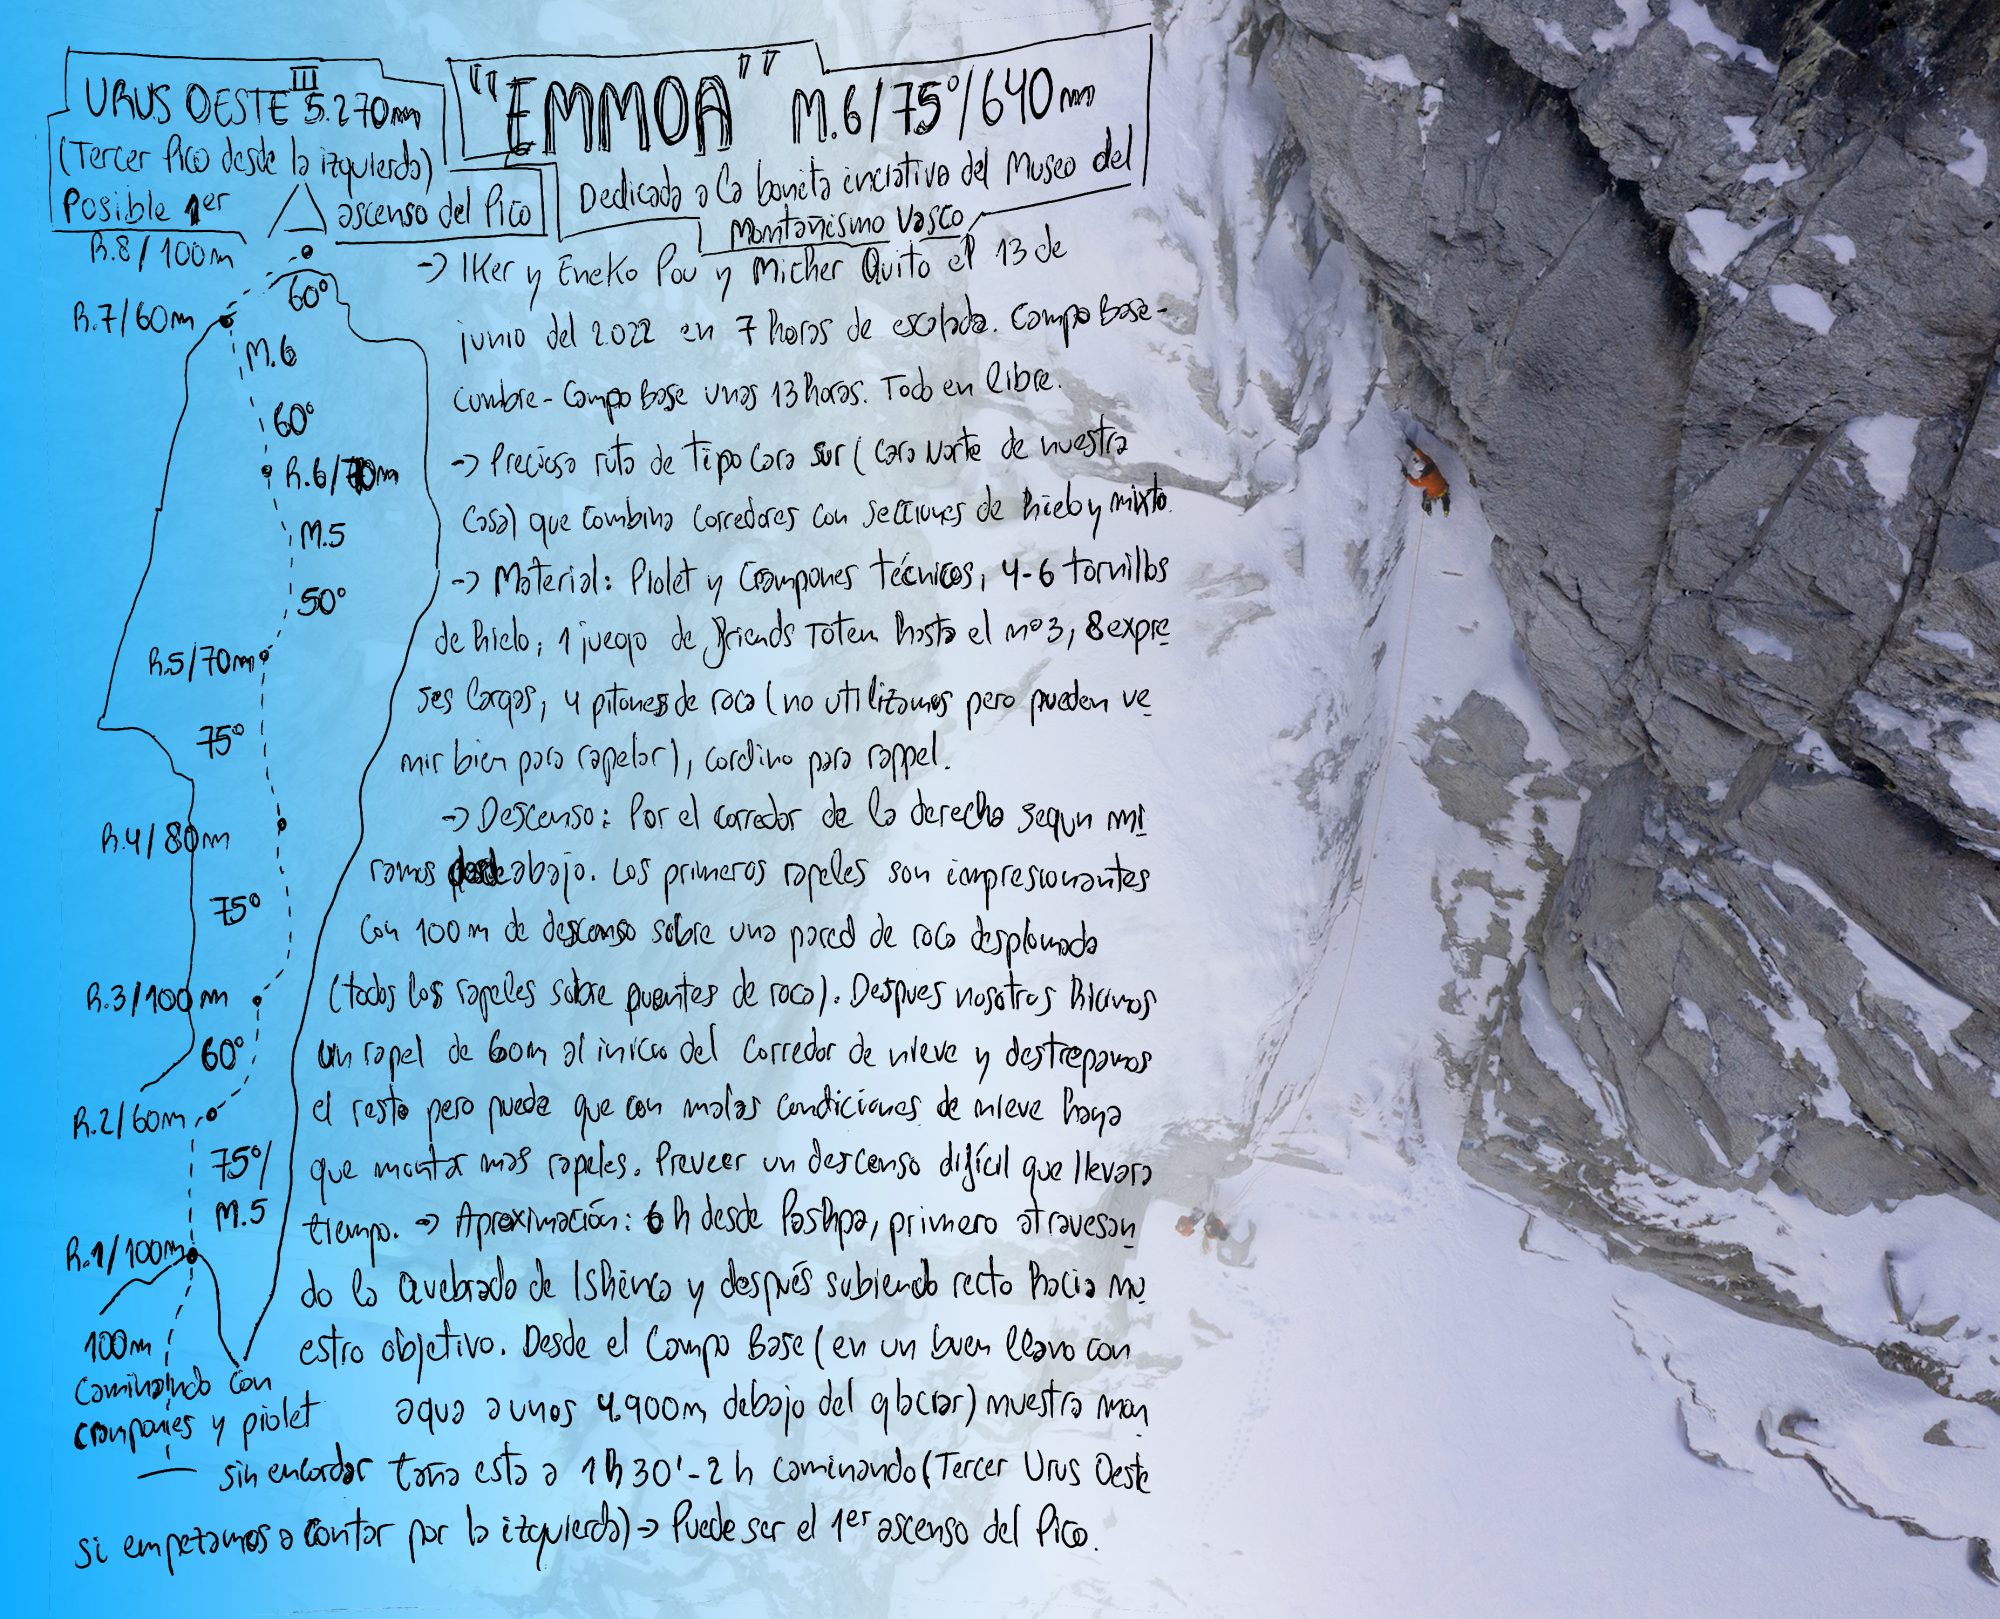 URUS OESTE III 5.270m
(Tercer Pico desde la izquierda)
Posible 1er
ascenso del Pico
"EMMOA" M.6/75°/640m
Dedicada a la bonita iniciativa del Museo del
Montañismo Vasco
R.8/100m
60°
R.7/60m
M.6
60°
R.6/70m
M.5
50°
R.5/70m
75°
R.4/80m
75°
R.3/100m
60°
R.2/60m
75°/
M.5
R.1/100m
100m
Caminando con
crampones y piolet
sin encordar
-> Iker y Eneko Pou y Micher Quito el 13 de
junio del 2.022 en 7 horas de escalada. Campo Base-
cumbre- Campo Base unas 13 horas. Todo en libre.
-> Preciosa ruta de tipo Cara Sur (Cara Norte de nuestra
casa) que combina corredores con secciones de hielo y mixto.
-> Material: Piolet y Crampones técnicos, 4-6 tornillos
de hielo, 1 juego de friends Totem hasta el nº3, 8 expre
ses largas, 4 pitones de roca (no utilizamos pero pueden ve
nir bien para rapelar), cordino para rappel.
-> Descenso: Por el corredor de la derecha segun mi
ramos desde abajo. Los primeros rapeles son impresionantes
con 100m de descenso sobre una pared de roca desplomada
(todos los rapeles sobre puentes de roca). Despues nosotros hicimos
un rapel de 60m al inicio del corredor de nieve y destrepamos
el resto pero puede que con malas condiciones de nieve haya
que montar mas rapeles. Preveer un descenso difícil que llevara
tiempo. -> Aproximación: 6h desde Pashpa, primero atravesan
do la Quebrada de Ishinca y después subiendo recto hacia nu
estro objetivo. Desde el Campo Base (en un buen llano con
agua a unos 4.900m debajo del glaciar) nuestra mon
taña esta a 1h30'-2h caminando (Tercer Urus Oeste
si empezamos a contar por la izquierda) -> Puede ser el 1er ascenso del Pico.